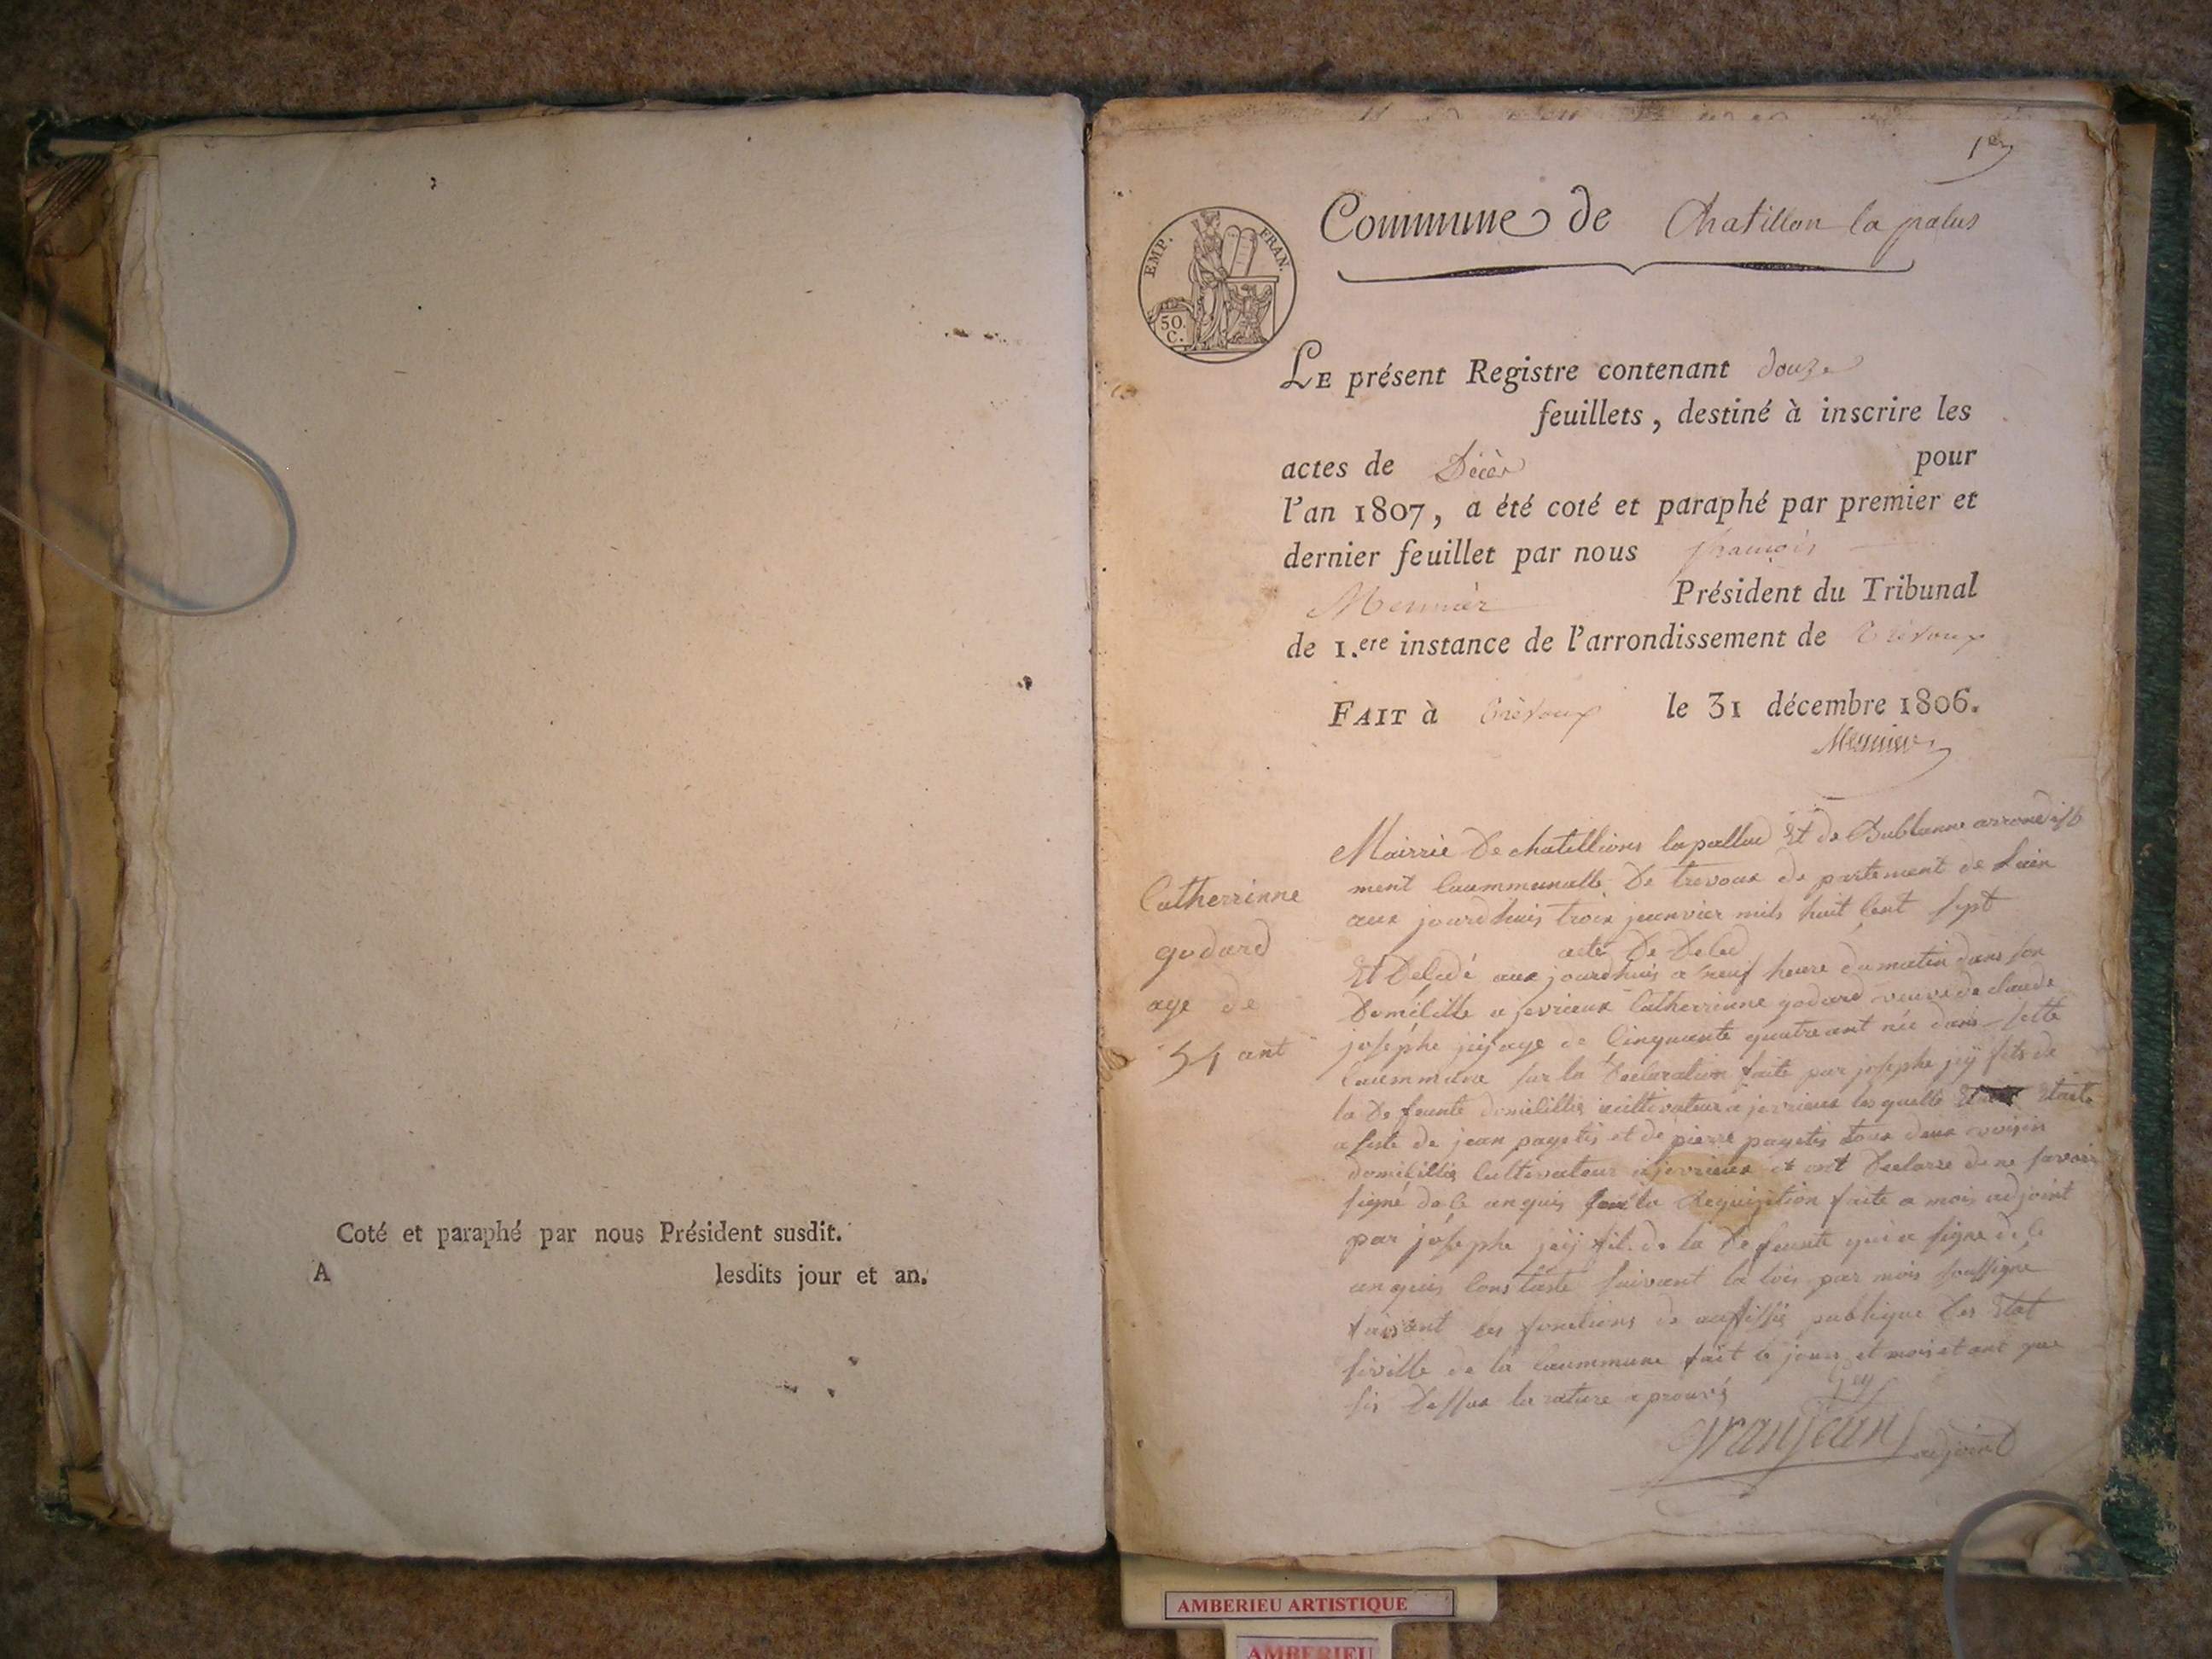 Coté et paraphé par nous Président susdit.
A lesdits jour et an.
1er
EMP. FRAN.
50.
C.
Commune de Chatillon la palus
LE présent Registre contenant douze
feuillets, destiné à inscrire les
actes de Décès pour
l'an 1807, a été coté et paraphé par premier et
dernier feuillet par nous françois
Meunier Président du Tribunal
de 1.ere instance de l'arrondissement de Trévoux
FAIT à Trévoux le 31 décembre 1806.
Meunier
Catherrinne
godard
age de
54 ant
Mairrie De chatillions lapallud Et de Dublanne arrondisse
ment Caummunalle De trevoux de partement de Lain
aux jourdhuis troix jeanvier mils huit Cent sept
acte De Deled
Et Deledé aux jourdhuis a neuf heure du matin dans son
Domélille a jevrieux Catherrinne godard veuve de claude
joséphe jeij age de Cinquante quatre ant née dans sette
Caummune sur la Declaration faite par josephe jeij fils de
la De feunte domilillié cultivateur a jevrieux les quelle Etaite
asiste de jean pagetis et de pierre pagetis toux deux voisin
domilillié Cultivateur a jevrieux et ont Declaree de ne savoir
signé de le anquis la Requisition faite a mois adjoint
par josephe jeij fil de la De feunte qui a signe de le
anquis Constaté suivant la lois par mois soussigné
faisant les fonctions de auffissié publique Des Etat
siville de la Caummune fait le jour et mois et ant que
sis Dessus la rature aprouvé
Gey
granjean adjoint
AMBERIEU ARTISTIQUE
AMBERIEU